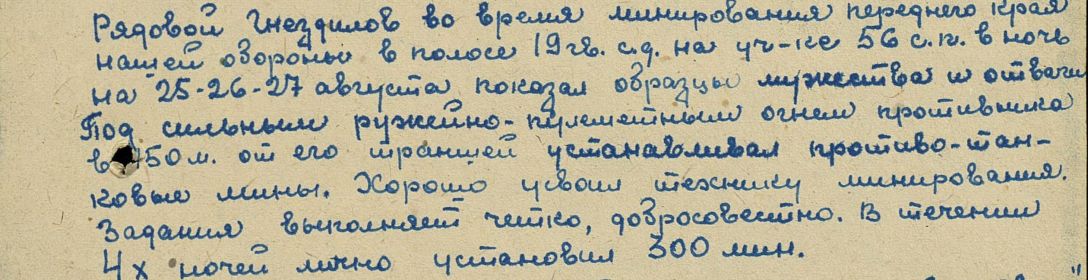 Рядовой Гнездилов во время минирования переднего края
нашей обороны в полосе 19 гв. с.д. на уч-ке 56 с.п. в ночь
на 25-26-27 августа показал образцы мужества и отваги
Под сильным ружейно-пулеметным огнем противника
в 150 м. от его траншей устанавливал противо-тан-
ковые мины. Хорошо усвоил технику минирования.
Задания выполняет четко, добросовестно. В течении
4х ночей лично установил 300 мин.